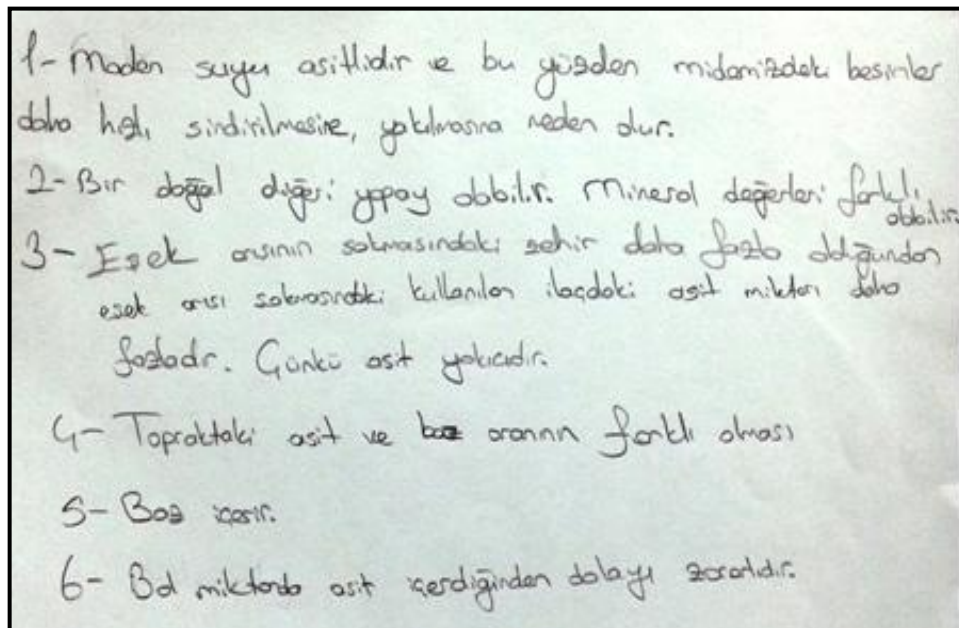 1- Maden suyu asitlidir ve bu yüzden midemizdeki besinler
daha hızlı, sindirilmesine, yakılmasına neden olur.
2- Bir doğal diğeri yapay olabilir. Mineral değerleri farklı
olabilir.
3- Eşek arısının sokmasındaki zehir daha fazla olduğundan
eşek arısı sokmasındaki kullanılan ilaçdaki asit miktarı daha
fazladır. Çünkü asit yakıcıdır.
4- Topraktaki asit ve baz oranının farklı olması
5- Baz içerir.
6- Bol miktarda asit içerdiğinden dolayı zararlıdır.